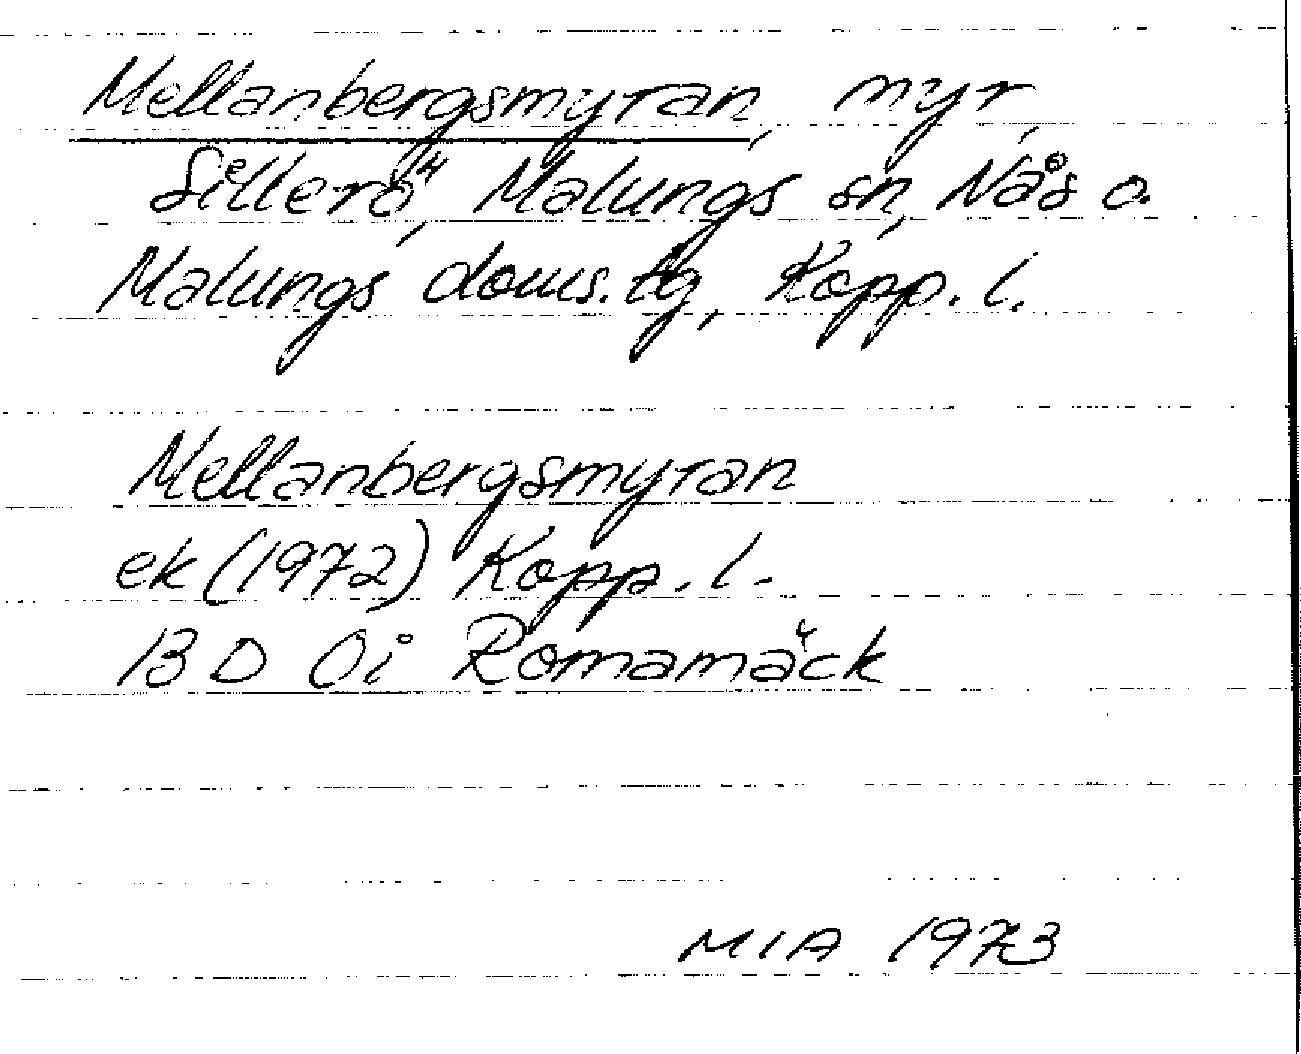 Mellanbergsmyran, myr,
Sillerö, Malungs sn, Nås o.
Malungs doms.tg, Kopp. l.
Mellanbergsmyran
ek (1972) Kopp. l.
13 D 0i Romamäck
MIA 1973